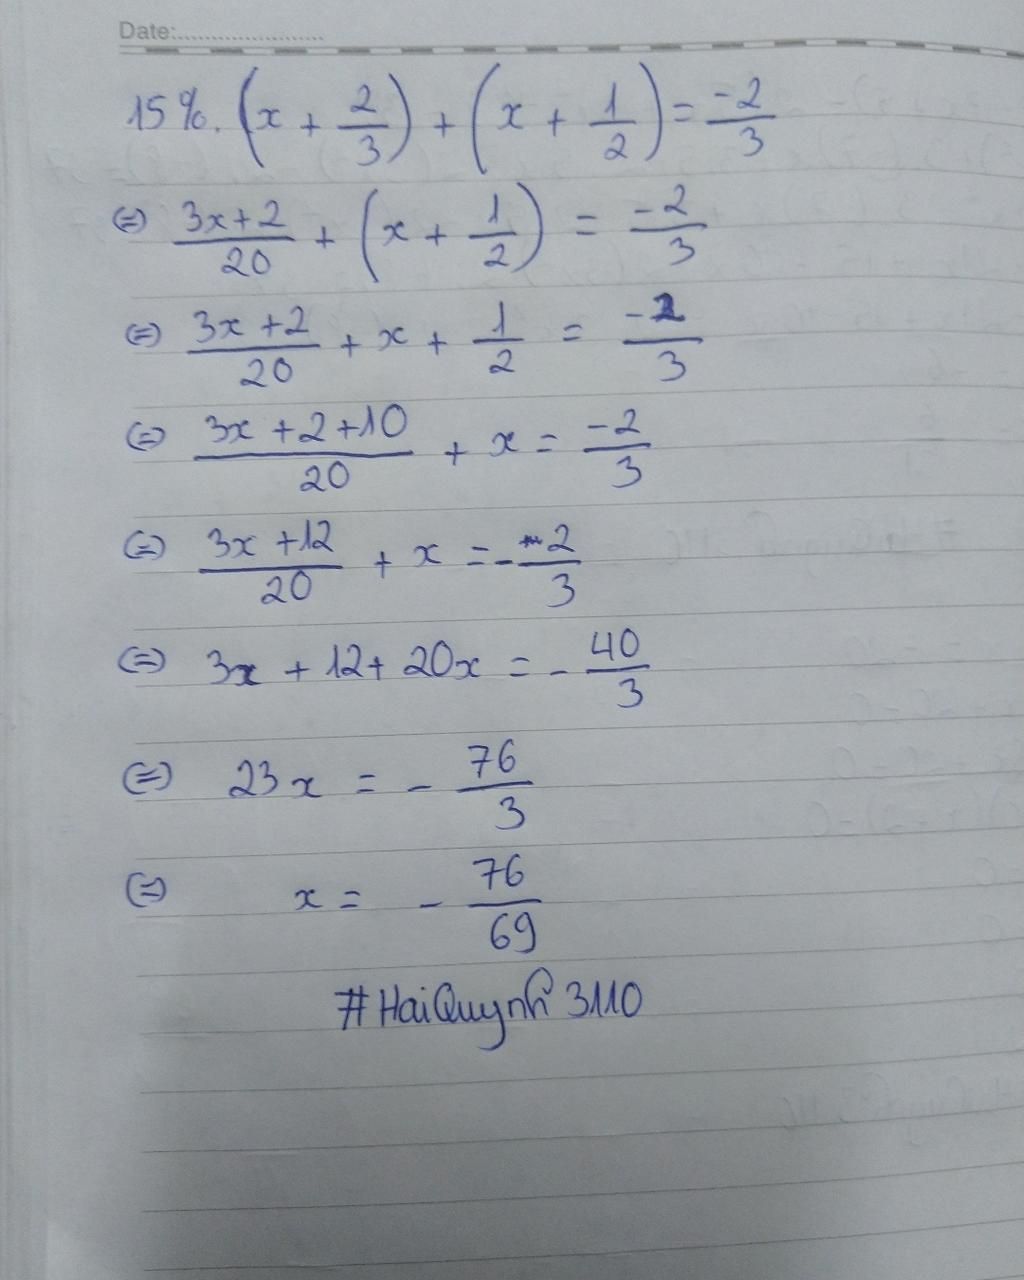 Date:......................
15%. (x + 2/3) + (x + 1/2) = -2/3
(=) 3x+2/20 + (x + 1/2) = -2/3
(=) 3x+2/20 + x + 1/2 = -2/3
(=) 3x+2+10/20 + x = -2/3
(=) 3x+12/20 + x = -2/3
(=) 3x + 12 + 20x = - 40/3
(=) 23x = - 76/3
(=) x = - 76/69
#HaiQuynh 3110